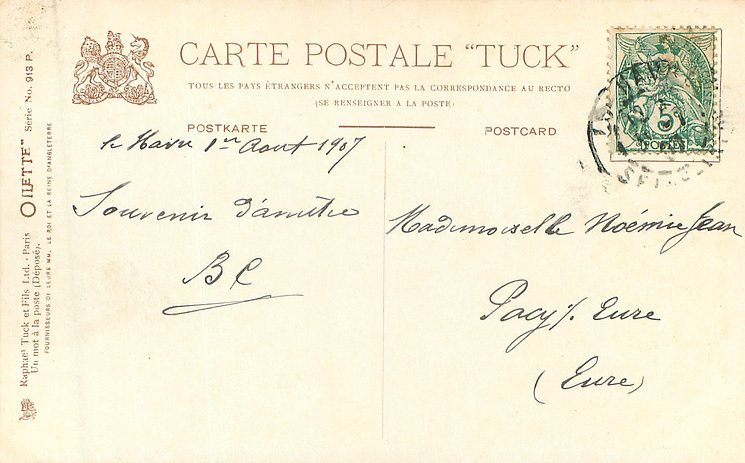 CARTE POSTALE "TUCK"
TOUS LES PAYS ÉTRANGERS N'ACCEPTENT PAS LA CORRESPONDANCE AU RECTO
(SE RENSEIGNER A LA POSTE)
POSTKARTE
POSTCARD
le Havre 1er Aout 1907
Souvenir d'amitié
BC
Mademoiselle Noémie Jean
Pacy s/ Eure
(Eure)
5
POSTES
Raphael Tuck et Fils Ltd. - Paris
Un mot à la poste (Déposé).
FOURNISSEURS DE LEURS MM. LE ROI ET LA REINE D'ANGLETERRE
OILETTE"
Série No. 913 P.